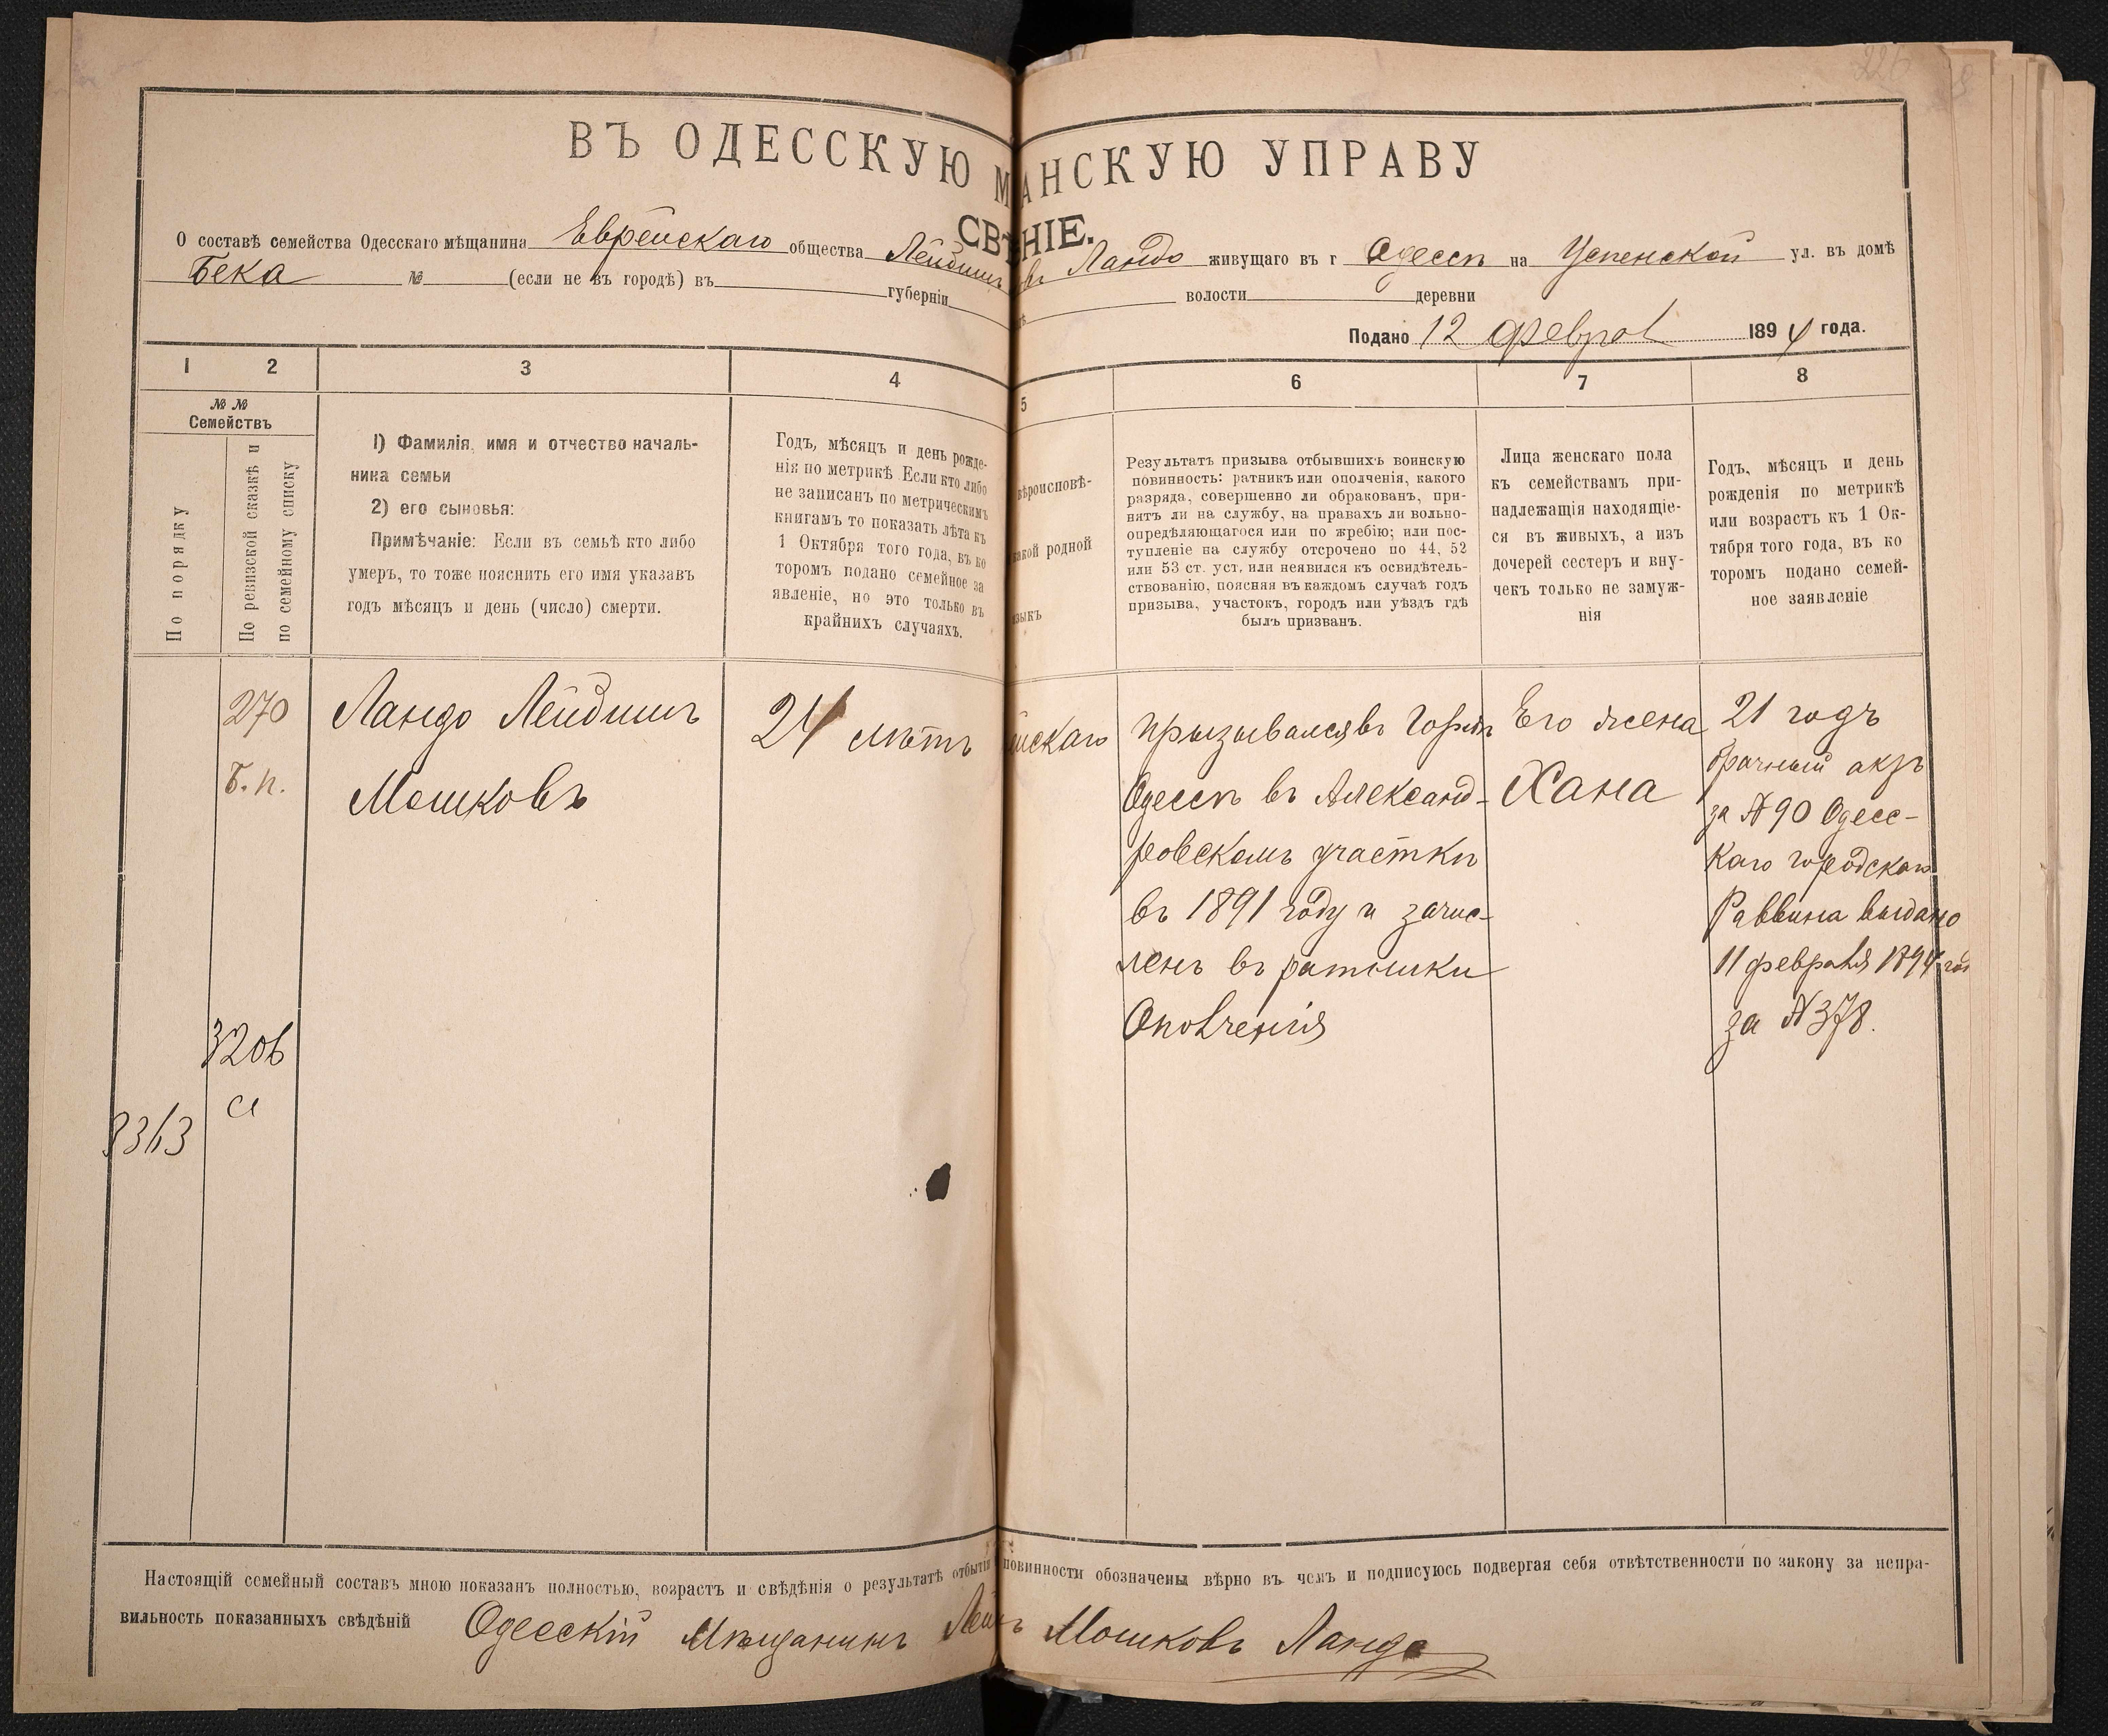 ВЪ ОДЕССКУЮ М АНСКУЮ УПРАВУ
СВѢ НІЕ.
О составѣ семейства Одесскаго мѣщанина Еврейскаго общества Лейдишъ въ Ландо живущаго въ г Одессѣ на Успенской ул. въ домѣ
Бека № (если не въ городѣ) въ губерніи волости деревни
Подано 12 феврал 1894 года.
1 2 3 4 5 6 7 8
№ №
Семействъ
По порядку
По ревизской сказкѣ и
по семейному списку
1) Фамилія, имя и отчество началь-
ника семьи
2) его сыновья:
Примѣчаніе: Если въ семьѣ кто либо
умеръ, то тоже пояснить его имя указавъ
годъ мѣсяцъ и день (число) смерти.
Годъ, мѣсяцъ и день рожде-
нія по метрикѣ Если кто либо
не записанъ по метрическимъ
книгамъ то показать лѣта къ
1 Октября того года, въ ко
торомъ подано семейное за
явленіе, но это только въ
крайнихъ случаяхъ.
вѣроисповѣ-
какой родной
языкъ
Результатъ призыва отбывшихъ воинскую
повинность: ратникъ или ополченія, какого
разряда, совершенно ли обракованъ, при-
нятъ ли на службу, на правахъ ли вольно-
опредѣляющагося или по жребію; или пос-
тупленіе на службу отсрочено по 44, 52
или 53 ст. уст. или неявился къ освидѣтель-
ствованію, поясняя въ каждомъ случаѣ годъ
призыва, участокъ, городъ или уѣздъ гдѣ
былъ призванъ.
Лица женскаго пола
къ семействамъ при-
надлежащія находящіе-
ся въ живыхъ, а изъ
дочерей сестеръ и вну-
чекъ только не замуж-
нія
Годъ, мѣсяцъ и день
рожденія по метрикѣ
или возрастъ къ 1 Ок-
тября того года, въ ко
торомъ подано семей-
ное заявленіе
270
Б. п.
320б
а
Ландо Лейдишъ
Мошковъ
24 лѣтъ
йскаго
Призывался въ Городѣ
Одессѣ въ Александ-
ровскомъ участкѣ
въ 1891 году и зачис-
ленъ въ ратники
Ополченія
Его жена
Хана
21 годъ
брачный актъ
за № 90 Одесс-
каго городскаго
Раввина выдано
11 февраля 1894 год
за № 378.
Настоящій семейный составъ мною показанъ полностью, возрастъ и свѣдѣнія о результатѣ отбытія повинности обозначены вѣрно въ чемъ и подписуюсь подвергая себя отвѣтственности по закону за непра-
вильность показанныхъ свѣдѣній Одесскій Мѣщанинъ Лей ъ Мошковъ Ландо